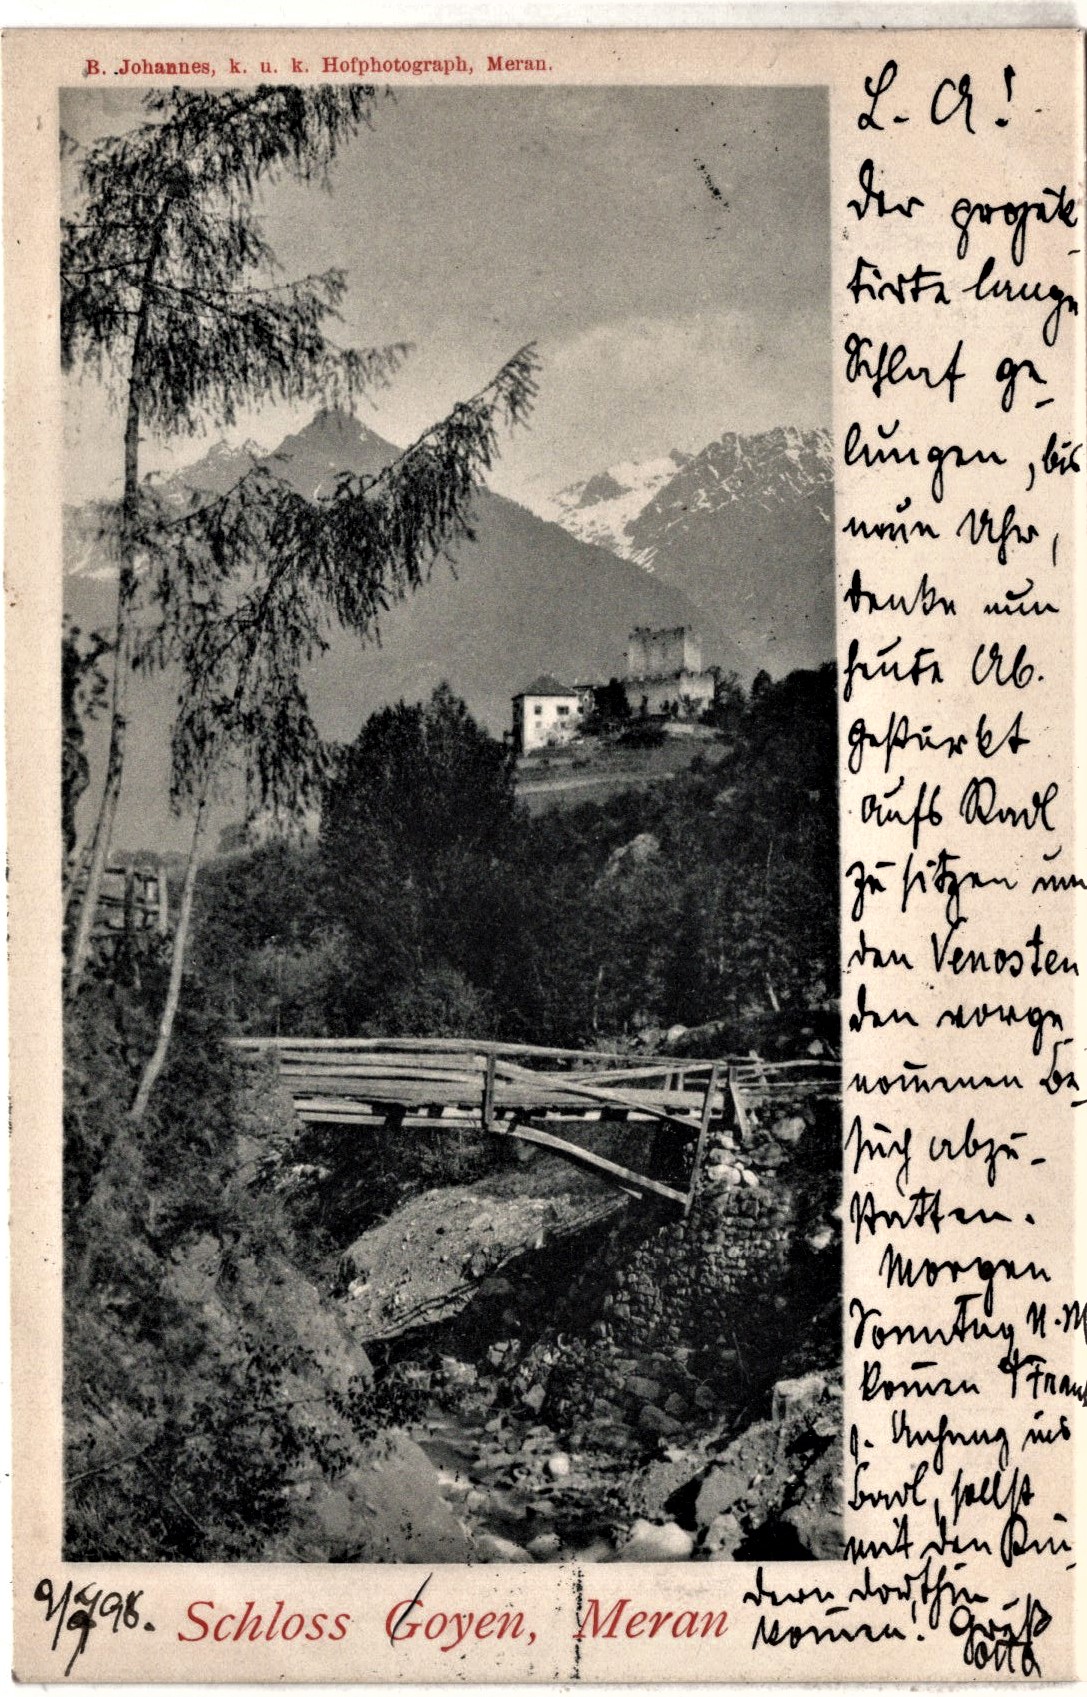 B. Johannes, k. u. k. Hofphotograph, Meran.
L. A!
der projek
tirte lange
Schlaf ge-
lungen, bis
neun Uhr,
denke nun
heute Ab.
gestärkt
aufs Radl
zu sitzen um
den Venosten
den vorge
nom̄enen Be-
such abzu-
statten.
Morgen
Sonntag N. M
kom̄en
Anhang ins
Badl, sollst
mit den Kin
dern dorthin
kom̄en. Gruß
Otto
Schloss Goyen, Meran